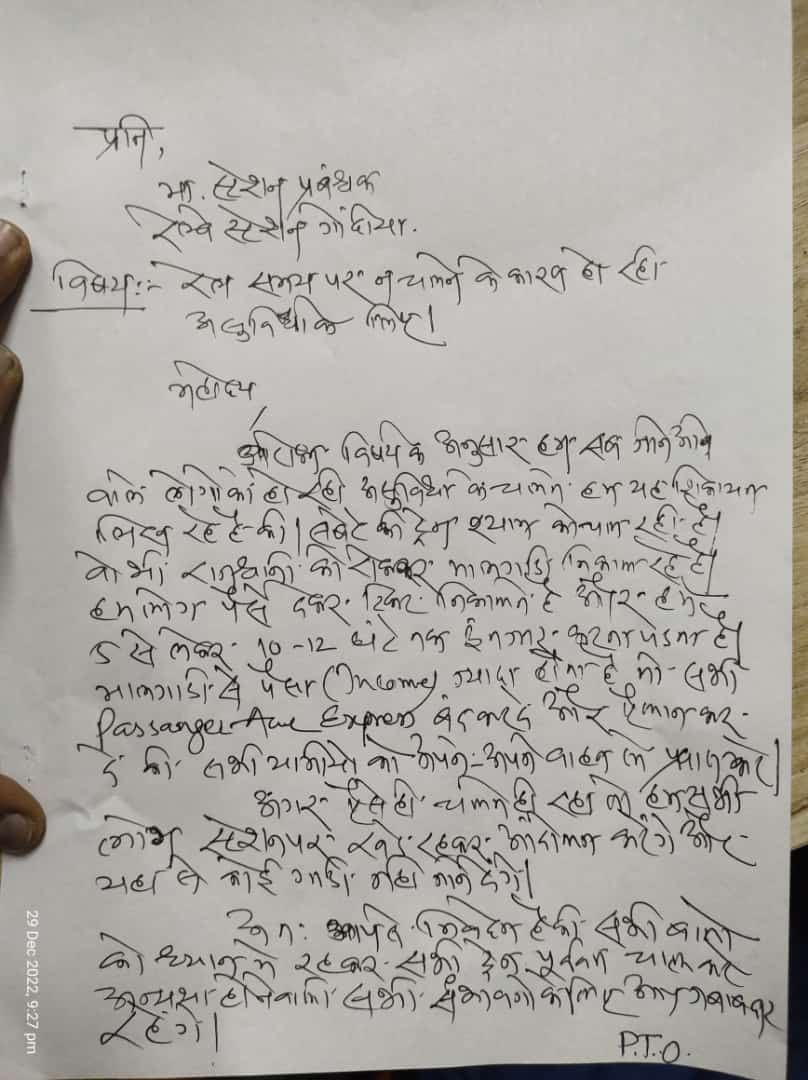 प्रति,
मा. स्टेशन प्रबंधक
रेल्वे स्टेशन गोंदीया.
विषय:- रेल समय पर न चलने के कारण हो रही
असुविधा के लिए।
महोदय
उपरोक्त विषय के अनुसार हम सब जाने आने
वाले लोगो को हो रही असुविधा के चलते हम यह शिकायत
लिख रहे है की। सबेरे की ट्रेन श्याम को चल रही है।
वो भी राजधानी को रोककर मालगाडी निकाल रहे है।
हम लोग पैसे देकर टिकट निकालते है और हमे
5 से लेकर 10-12 घंटे तक इंतजार करना पडता है।
मालगाडी से पैसा (Income) ज्यादा होता है तो सभी
Passanger Express बंद कर दे और ऐलान कर
दे की सभी यात्रीयो को अपने-अपने वाहन से प्रवास करे।
अगर ऐसे ही चलता ही रहा तो हम सभी
लोग स्टेशन पर खडे रहकर आंदोलन करेंगे और
यहा से कोई गाडी नही जाने देंगे।
अत: आपसे निवेदन है की सभी बातो
को ध्यान मे रखकर सभी ट्रेन पूर्ववत चालू करे
अन्यथा होनेवाली सभी के लिए आप जबाबदार
रहेंगे।
P.T.O.
29 Dec 2022, 9:27 pm